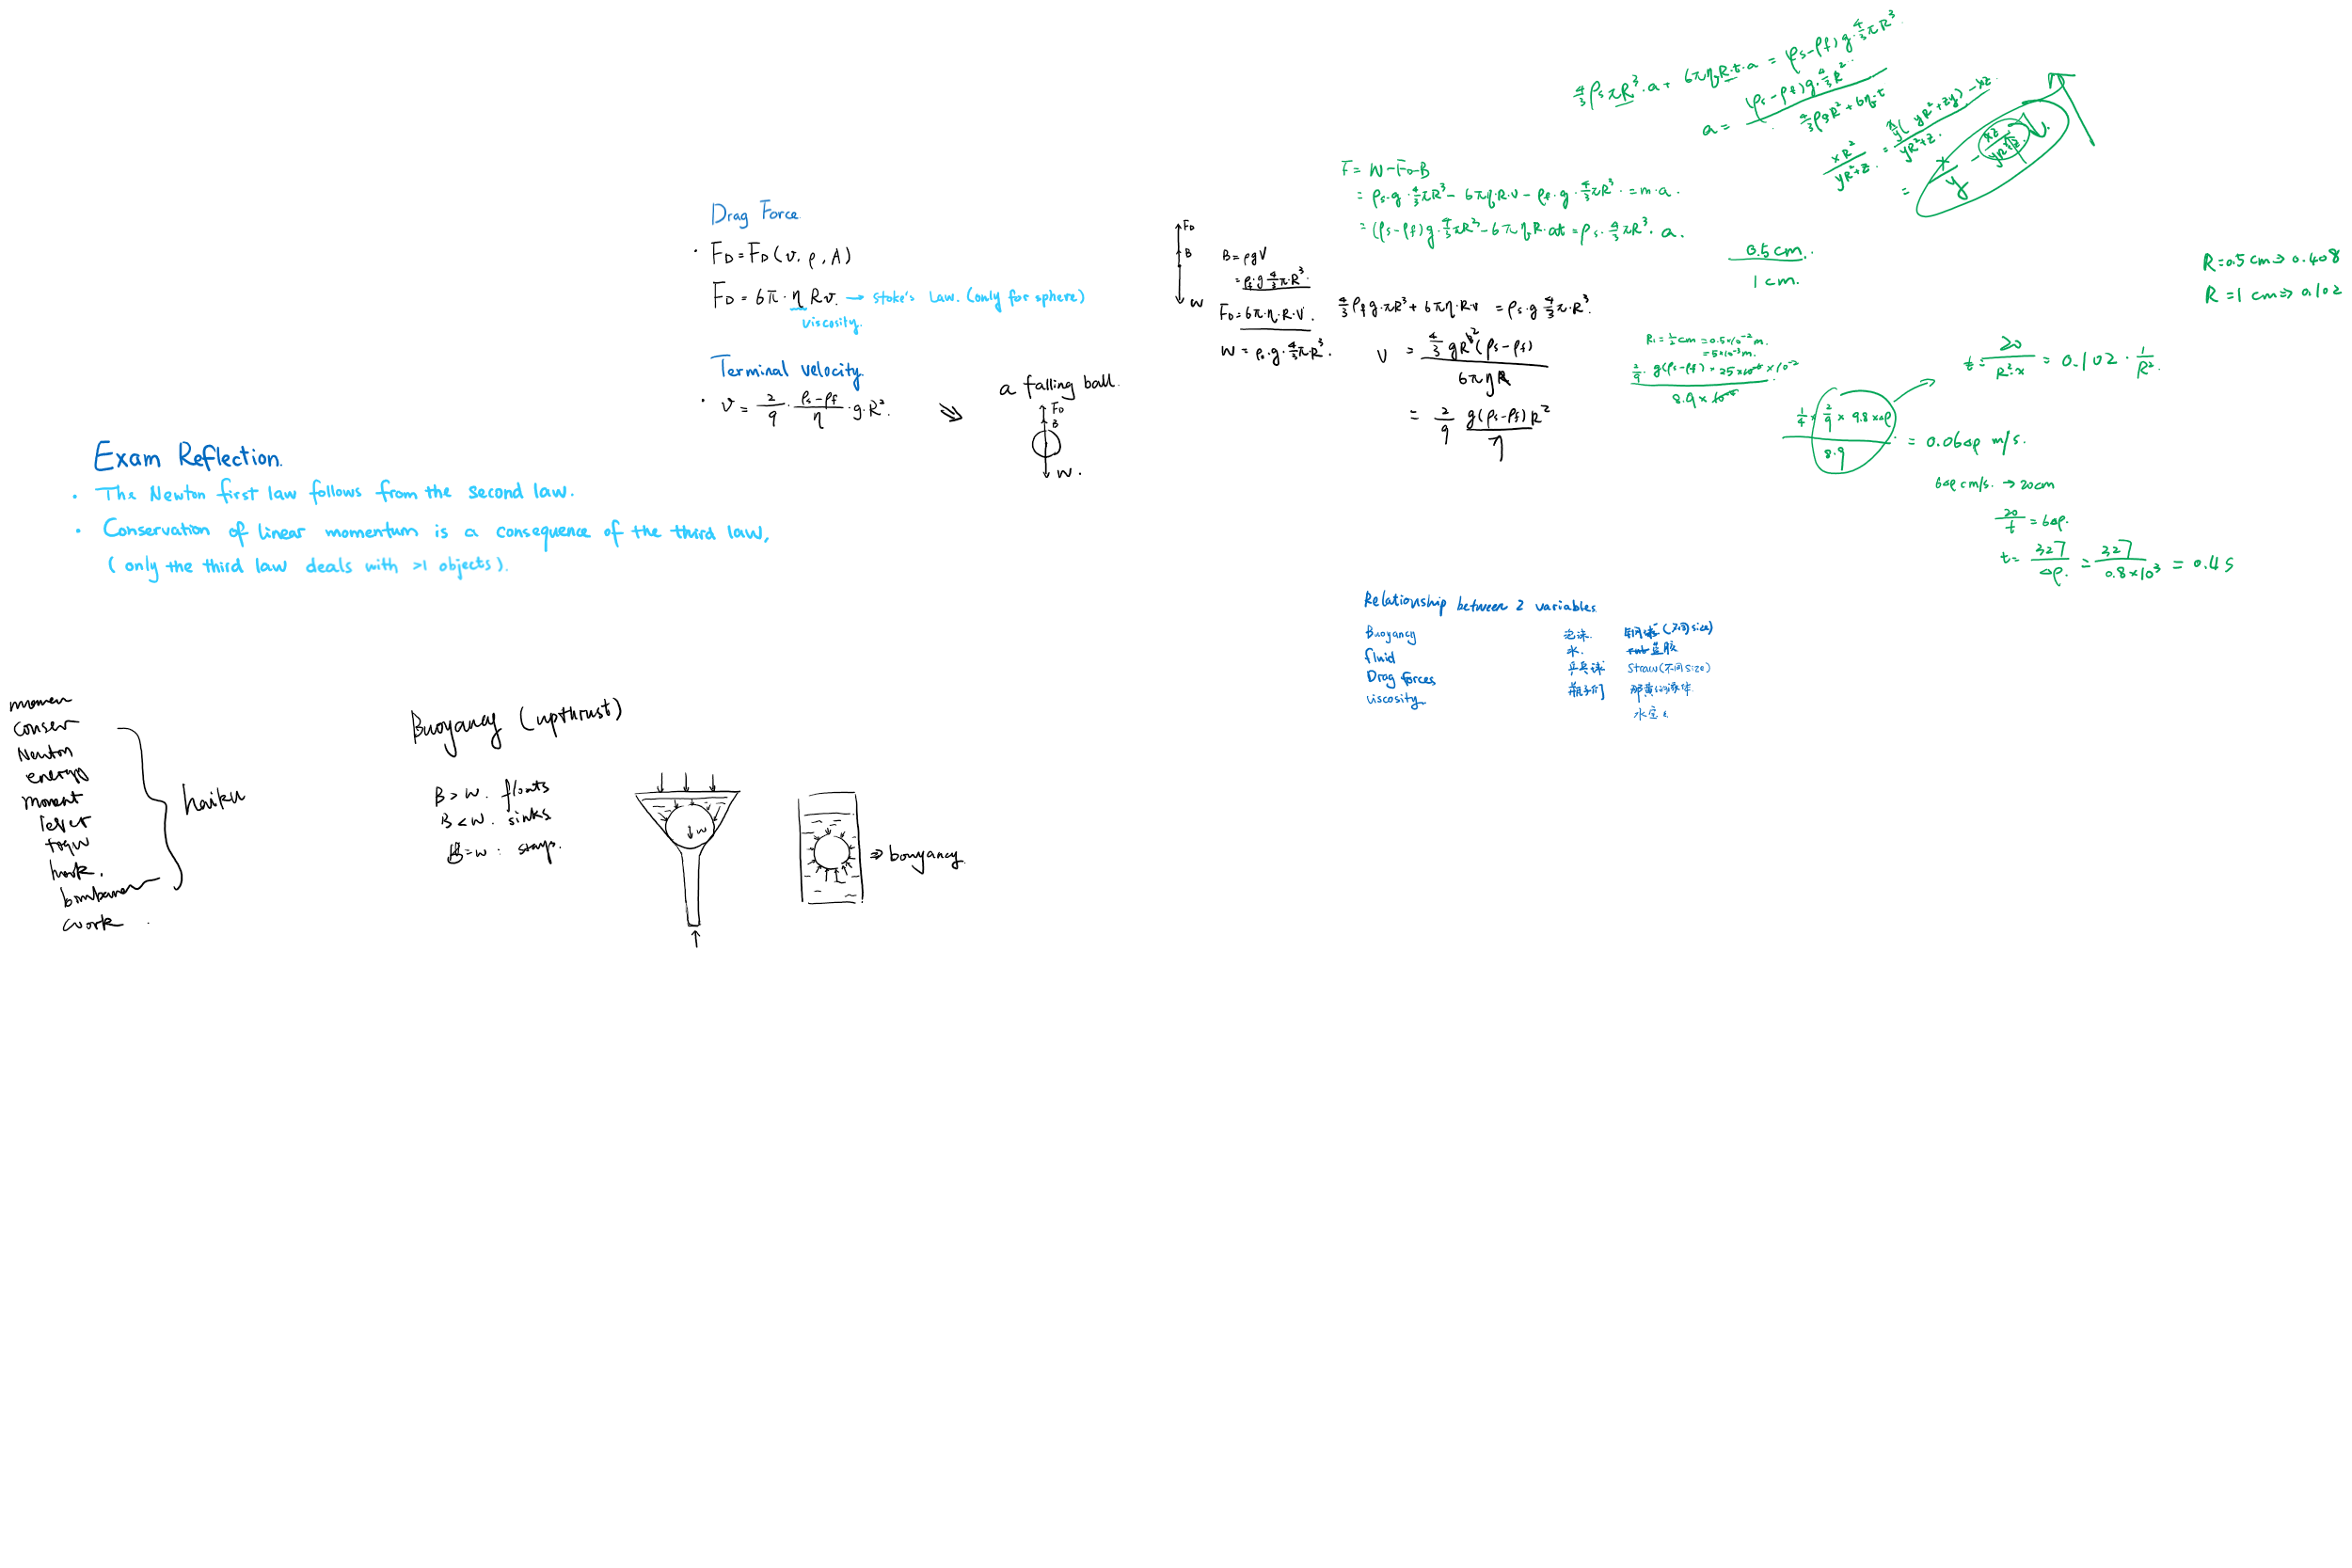 Exam Reflection.
· The Newton first law follows from the second law.
· Conservation of linear momentum is a consequence of the third law,
( only the third law deals with >1 objects ).
momen
conser
Newton
energy
moment
lever
haiku
work
Buoyancy (upthrust)
B > W. floats
B < W. sinks
B = W : stays.
W
⇒ bouyancy.
Drag Force.
· F_D = F_D (v, ρ, A)
F_D = 6π · η R v. → Stoke's Law. (only for sphere)
viscosity.
Terminal velocity.
· v = 2/9 · (ρs - ρf)/η · g · R².
a falling ball.
F_D
B
W.
F_D
B
W
B = ρgV
= ρf·g 4/3 π·R³.
F_D = 6π·η·R·V.
W = ρs·g·4/3 π·R³.
4/3 ρf g·πR³ + 6πη·R·v = ρs·g 4/3 π·R³.
V = 4/3 gR²(ρs - ρf) / 6πη
= 2/9 g(ρs - ρf)R² / η
F = W - F_D - B
= ρs·g·4/3 πR³ - 6πη·R·v - ρf·g·4/3 πR³ = m·a.
= (ρs - ρf) g·4/3 πR³ - 6πηR·at = ρs·4/3 πR³·a.
4/3 ρs πR³·a + 6πηR·t·a = (ρs - ρf) g·4/3 πR³.
a = (ρs - ρf) g·4/3 R² / 4/3 ρsR² + 6η·t
xR² / yR²+z = x/y( yR²+zy) - xz / yR²+z.
= x/y -
0.5 cm.
1 cm.
R = 0.5 cm ⇒ 0.408
R = 1 cm ⇒ 0.102
R₁ = ½ cm = 0.5×10⁻² m.
= 5×10⁻³ m.
2/9 · g(ρs - ρf) × 25 × 10⁻²
8.9 ×
t = 20 / R²·x = 0.102 · 1/R².
1/4 × 2/9 × 9.8 × Δρ / 8.9 = 0.06Δρ m/s.
6Δρ cm/s. → 20cm
20/t = 6Δρ.
t = 327/Δρ. = 327 / 0.8×10³ = 0.4 s
Relationship between 2 variables.
Buoyancy
fluid
Drag forces
viscosity
泡沫. 钢球 (不同size)
水. 蓝胶
乒乓球 Straw (不同size)
瓶子们 那黄的液体
水宝